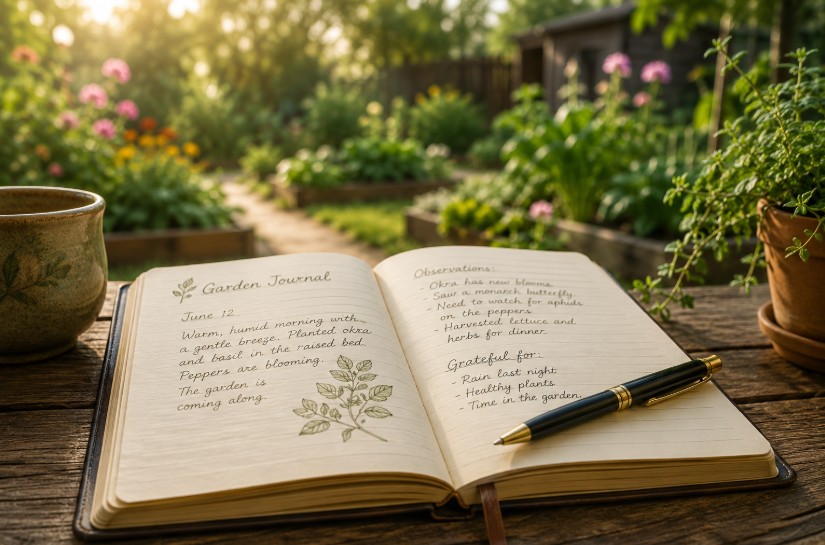 Garden Journal
June 12
Warm, humid morning with
a gentle breeze. Planted okra
and basil in the raised bed.
Peppers are blooming.
The garden is
coming along.
Observations:
- Okra has new blooms.
- Saw a monarch butterfly.
- Need to watch for aphids
on the peppers.
- Harvested lettuce and
herbs for dinner.
Grateful for:
- Rain last night
- Healthy plants
- Time in the garden.